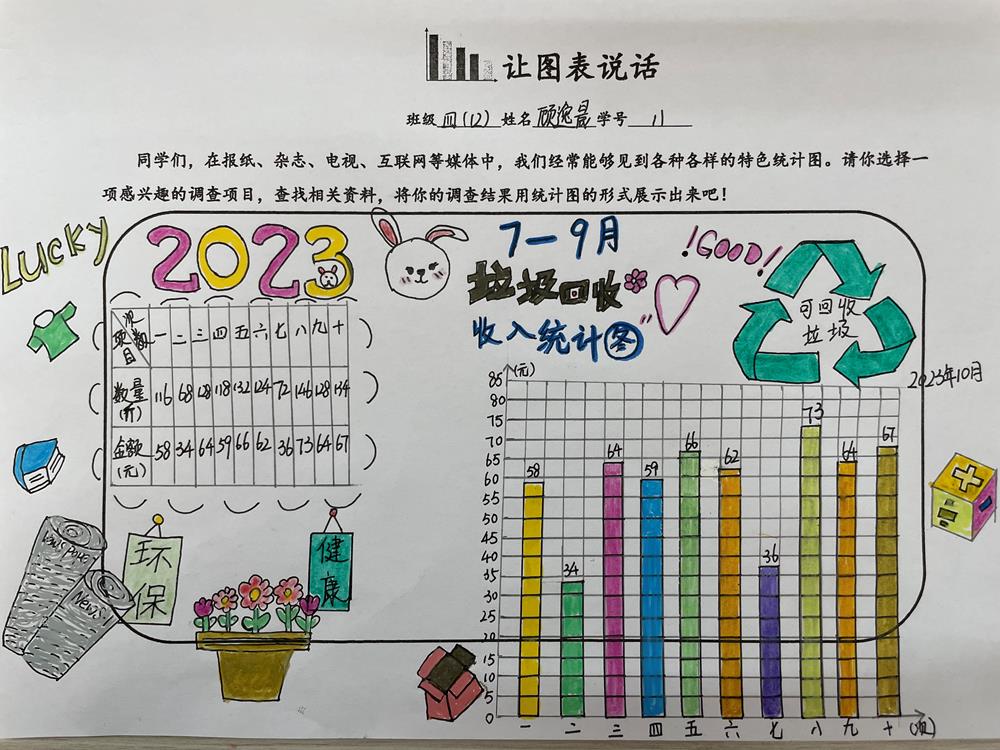 让图表说话
班级 四(12) 姓名 顾逸晨 学号 11
同学们，在报纸、杂志、电视、互联网等媒体中，我们经常能够见到各种各样的特色统计图。请你选择一
项感兴趣的调查项目，查找相关资料，将你的调查结果用统计图的形式展示出来吧！
Lucky
2023
7－9月
垃圾回收
收入统计图
!GOOD!
可回收
垃圾
2023年10月
项目 一 二 三 四 五 六 七 八 九 十
数量(斤) 116 68 128 118 132 124 72 146 128 134
金额(元) 58 34 64 59 66 62 36 73 64 67
环保
健康
News
(元)
85
80
75
70
65
60
55
50
45
40
35
30
25
20
15
10
5
0
58 34 64 59 66 62 36 73 64 67
一 二 三 四 五 六 七 八 九 十